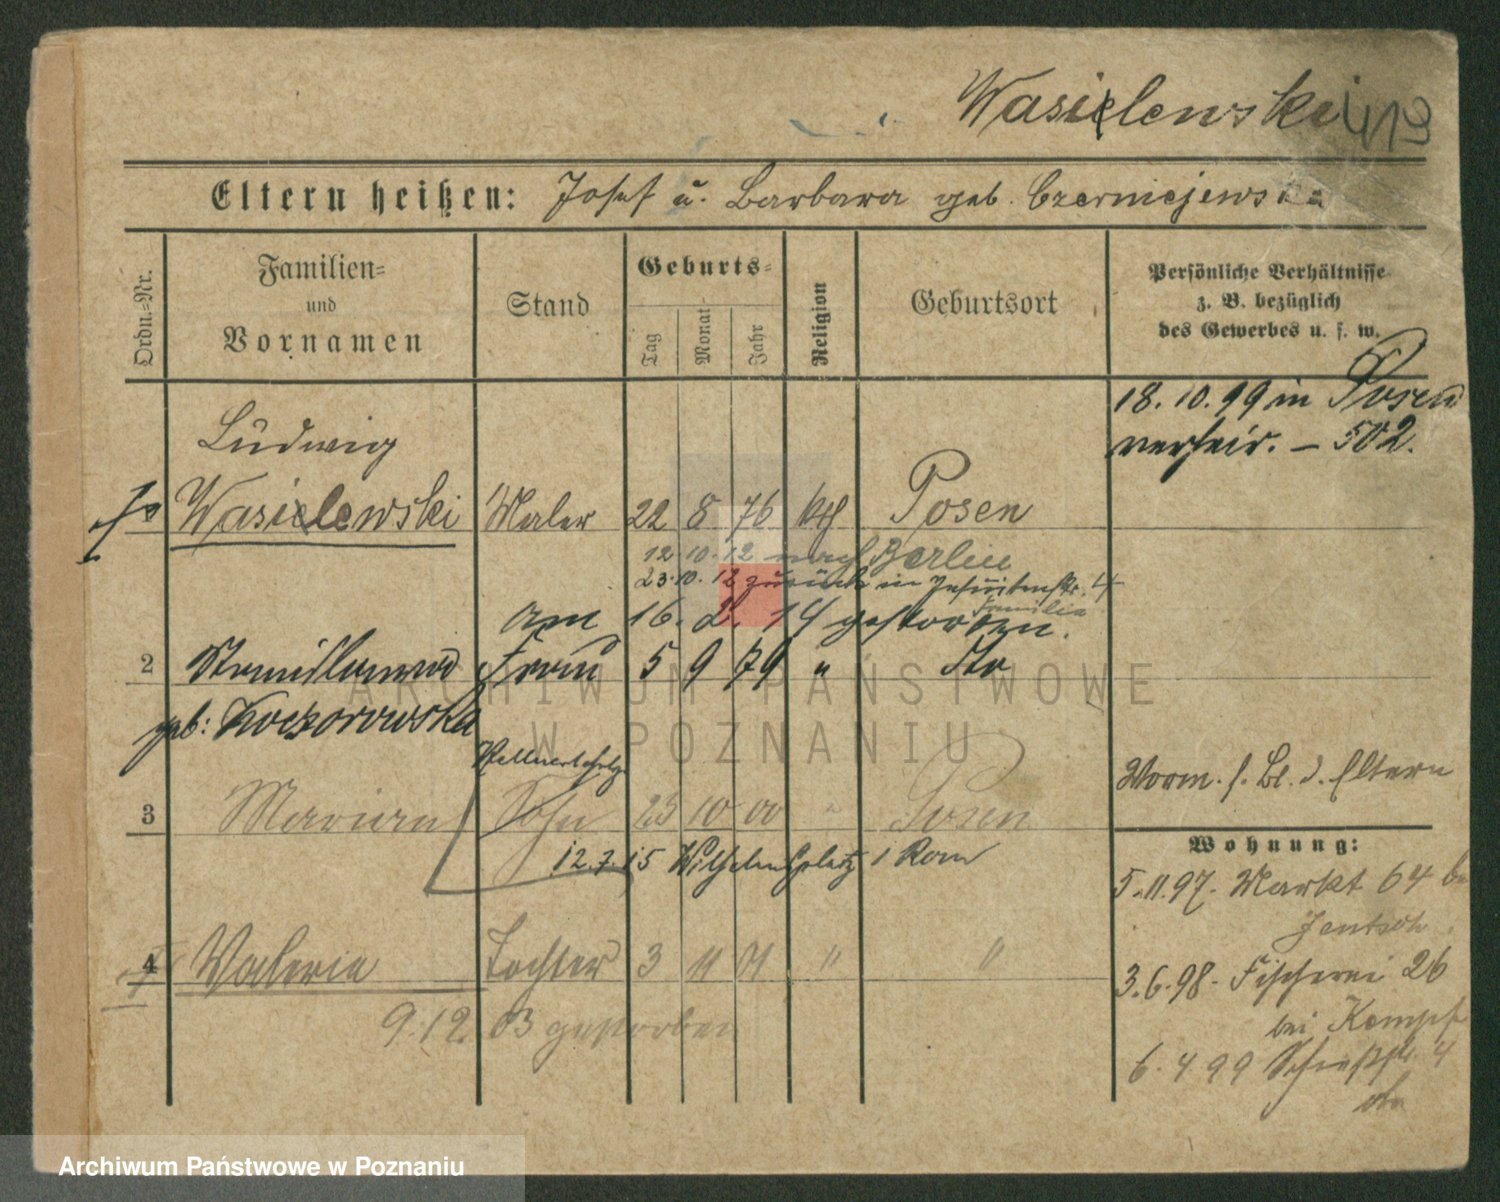 Wasielewski 419
Eltern heißen: Josef u. Barbara geb. Czerniejewska
Ordn.=Nr.
Familien=
und
Vornamen
Stand
Geburts=
Tag
Monat
Jahr
Religion
Geburtsort
Persönliche Verhältnisse
z. B. bezüglich
des Gewerbes u. s. w.
18.10.99 in Posen
verheir. – 502.
Ludwig
Wasielewski Maler 22 8 76 kth Posen
12.10.12 nach Berlin
23.10.12 zurück in Jesuitenstr. 4
Familie
am 16. 2. 14 gestorben.
2 Stanislawa Frau 5 9 79 " dto
geb: Koczorowska
Kellnerlehrlg
3 Marian Sohn 23 10 00 " Posen
12.7.15 Wilhelmsplatz 1
4 Valeria Tochter 3 11 01 " "
9.12 03 gestorben
Vorm. s. Bl. d. Eltern
Wohnung:
5.11.97. Markt 64 bei
Jentsch
3.6.98. Fischerei 26
bei Kempf
6.4 99 Schießstr. 4
ARCHIWUM PAŃSTWOWE
W POZNANIU
Archiwum Państwowe w Poznaniu